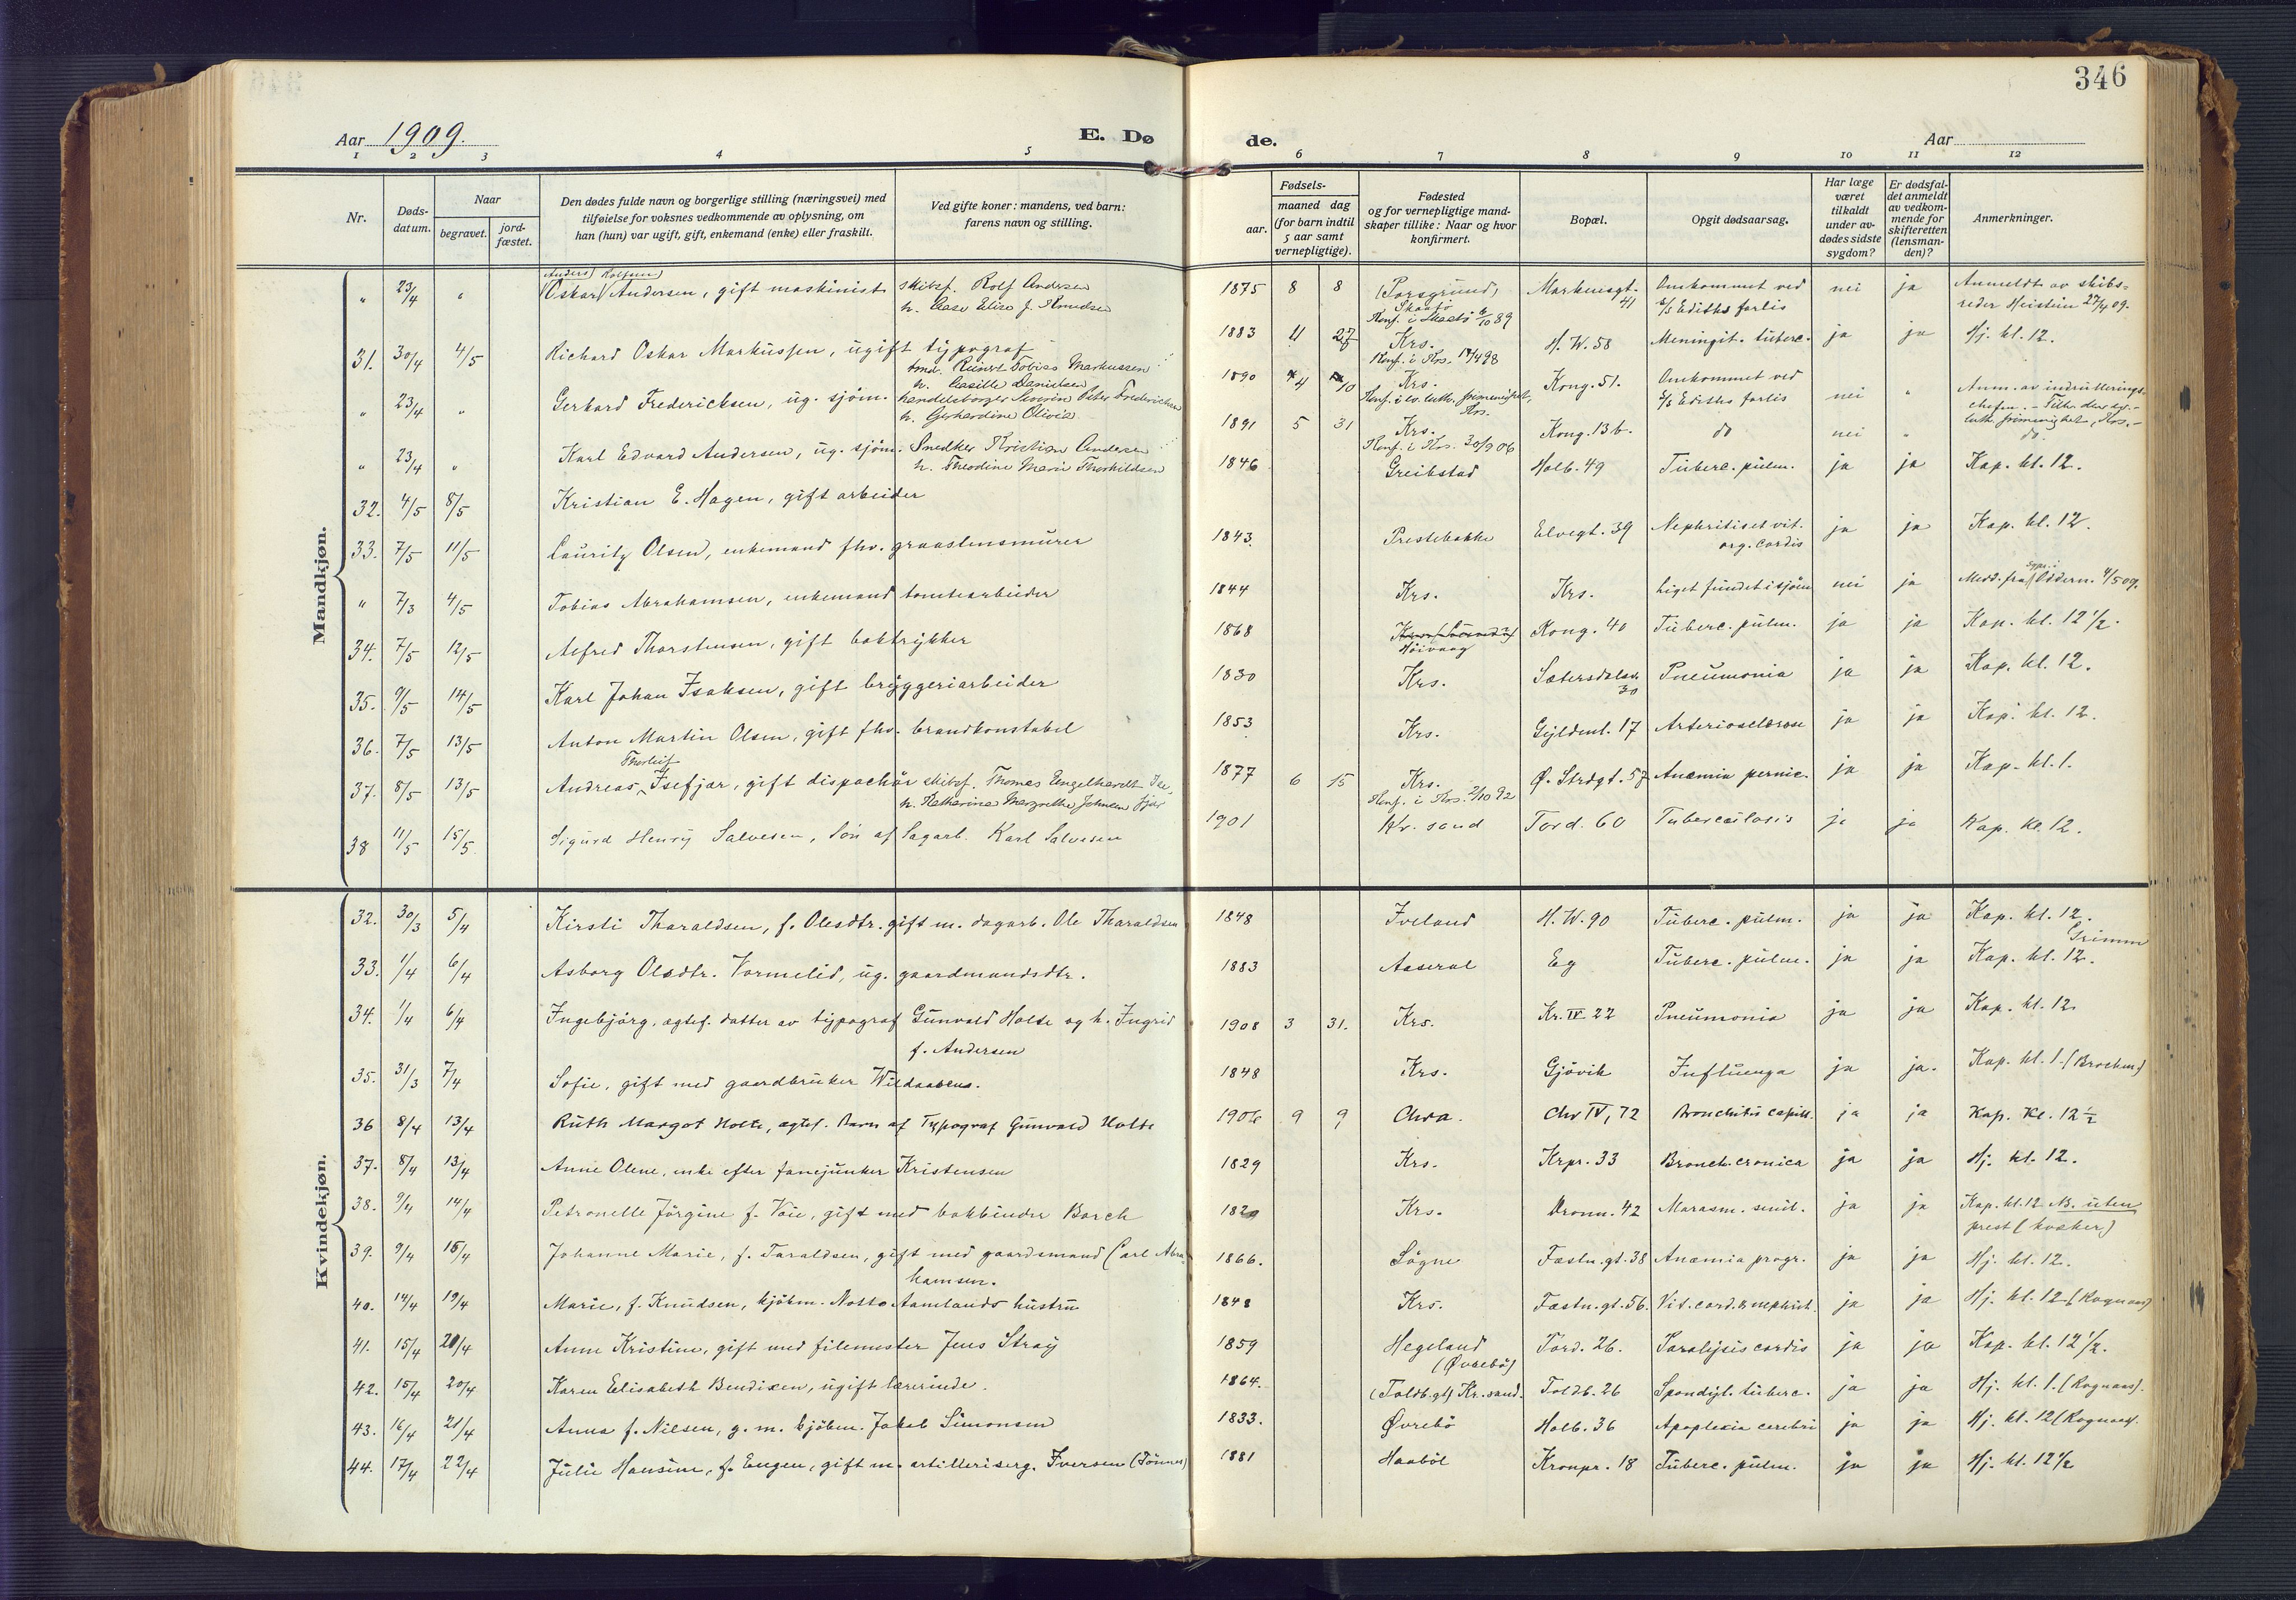 346
Aar 1909.
E. Dø
de.
Aar
1 2 3 4 5 6 7 8 9 10 11 12
Nr.
Døds-
datum.
Naar
begravet.
jord-
fæstet.
Den dødes fulde navn og borgerlige stilling (næringsvei) med
tilføielse for voksnes vedkommende av oplysning, om
han (hun) var ugift, gift, enkemand (enke) eller fraskilt.
Ved gifte koner: mandens, ved barn:
farens navn og stilling.
Fødsels-
aar.
maaned dag
(for barn indtil
5 aar samt
vernepligtige).
Fødested
og for vernepligtige mand-
skaper tillike: Naar og hvor
konfirmert.
Bopæl.
Opgit dødsaarsag.
Har læge
været
tilkaldt
under av-
dødes sidste
sygdom?
Er dødsfal-
det anmeldt
av vedkom-
mende for
skifteretten
(lensman-
den)?
Anmerkninger.
Mandkjøn.
Anders) Rolfsen)
" 23/4 " (Oskar) Andersen, gift maskinist skibsf. Rolf Andersen 1875 8 8 (Porsgrund) Markensgt. 41 Omkommet ved nei ja Anmeldt av skibs-
h. Aase Elise f. Knudsen Skaatø s/s Ediths forlis reder Heistein 27/4 09.
Konf. i Skaatø 6/10 89
31. 30/4 4/5 Richard Oskar Markussen, ugift typograf 1883 11 27 Krs. H. W. 58 Meningit. tuberc. ja ja Hj. kl. 12.
tmd. Reinert Tobias Markussen Konf. i Krs. 17/4 98
h. Danielsen
" 23/4 " Gerhard Fredericksen, ug. sjøm. handelsborger Severin Peter Fredericksen 1890 4 10 Krs. Kong. 51. Omkommet ved nei " Anm. av indrullerings-
h. Gerhardine Olivia Konf. i ev. luth. frimenighet, Krs. s/s Ediths forlis chefen. - Tilh. den ev.-
luth. frimenighet, Krs. -
" 23/4 " Karl Edvard Andersen, ug. sjøm. Snedker Kristian Andersen 1891 5 31 Krs. Kong. 13 b. do nei " do.
h. Theodine Marie Thorkildsen Konf. i Krs. 30/9 06
32. 4/5 8/5 Kristian E. Hagen, gift arbeider 1846 Greibstad Holb. 49 Tuberc. pulm. ja ja Kap. kl. 12.
33. 7/5 11/5 Lauritz Olsen, enkemand fhv. graastensmurer 1843. Prestebakke Elvegt. 39 Nephritis et vit. org. cordis ja ja Kap. kl. 12.
" 7/3 4/5 Tobias Abrahamsen, enkemand tomtearbeider 1844 Krs. Krs. Liget fundet i sjøen nei ja Medd. fra Oddern. 4/5 09.
34. 7/5 12/5 Alfred Thorstensen, gift boktrykker 1868 Høivaag Kong. 40 Tuberc. pulm. ja ja Kap. kl. 12 1/2.
35. 9/5 14/5 Karl Johan Isaksen, gift bryggeriarbeider 1830 Krs. Sætersdalsv. 30 Pneumonia ja ja Kap. kl. 12.
36. 7/5 13/5 Anton Martin Olsen, gift fhv. brandkonstabel 1853 Krs. Gyldenl. 17 Arteriosclerose ja ja Kap. kl. 12.
Thorleif
37. 8/5 13/5 Andreas Isefjær, gift dispachør skibsf. Thomas Engelhardt Ise- 1877 6 15 Krs. Ø. Strdgt. 57 Anæmia pernic. ja ja Kap. kl. 1.
h. Katharina Margrethe Johnsen fjær Konf. i Krs. 2/10 92
38 11/5 15/5 Sigurd Henry Salvesen, Søn af Sagarb. Karl Salvesen 1901 Kr. sand Tord. 60 Tuberculosis ja ja Kap. Kl. 12.
Kvindekjøn.
32. 30/3 5/4 Kirsti Tharaldsen, f. Olesdtr. gift m. dagarb. Ole Tharaldsen 1848 Iveland H. W. 90 Tuberc. pulm. ja ja Kap. kl. 12.
Grimm
33. 1/4 6/4 Asborg Olsdtr. Vormelid, ug. gaardmandsdtr. 1883 Aaseral Eg Tuberc. pulm. ja ja Kap. kl. 12.
34. 1/4 6/4 Ingebjørg, ægtef. datter av typograf Gunvald Holte og h. Ingrid 1908 3 31. Krs. Kr. IV 22 Pneumonia ja ja Kap. kl. 12
f. Andersen
35. 31/3 7/4 Sofie, gift med gaardbruker Wildaabens. 1848 Krs. Gjøvik Influenza ja ja. Kap. kl. 1. (Brochm.)
36 8/4 13/4 Ruth Margot Holte, ægtef. Barn af Typograf Gunvald Holte 1906 9 9 Chra. Chr IV, 72 Bronchitis capill. ja ja Kap. Kl. 12 1/2
37. 8/4 13/4 Anne Olene, enke efter fanejunker Kristensen 1829 Krs. Krpr. 33 Bronch. cronica ja ja Hj. kl. 12.
38. 9/4 14/4 Petronelle Jørgine f. Voie, gift med bokbinder Borch 1820 Krs. Dronn. 42 Marasm. senil. ja ja Kap. kl. 12 NB. uten
prest (kvæker)
39. 9/4 15/4 Johanne Marie, f. Taraldsen, gift med gaardsmand Carl Abra- 1866. Søgne Fæstn. gt. 38 Anæmia progr. ja ja Hj. kl. 12.
hamsen.
40. 14/4 19/4 Marie, f. Knudsen, kjøbm. Notto Aamlands hustru 1848 Krs. Fæstn. gt. 56. Vit. cord. & nephrit. ja ja Hj. kl. 12 (Rognaas)
41. 15/4 20/4 Anne Kristine, gift med filemester Jens Stray 1859 Hegeland Tord. 26. Paralysis cordis ja ja Kap. kl. 12 1/2.
(Øvrebø)
42. 15/4 20/4 Karen Elisabeth Bendixen, ugift lærerinde. 1864. (Toldb. gt) Kr. sand. Toldb. 26 Spondyl. tuberc. ja ja Hj. kl. 1. (Rognaas).
43. 16/4 21/4 Anna f. Nilsen, g. m. kjøbm. Jakob Simonsen 1833. Øvrebø Holb. 36 Apoplexia cerebri ja ja Hj. kl. 12 (Rognaas).
44. 17/4 22/4 Julie Hansine, f. Eugen, gift m. artilleriserg. Iversen (Tønnes) 1881 Haabøl Kronpr. 18 Tuberc. pulm. ja ja Hj. kl. 12 1/2